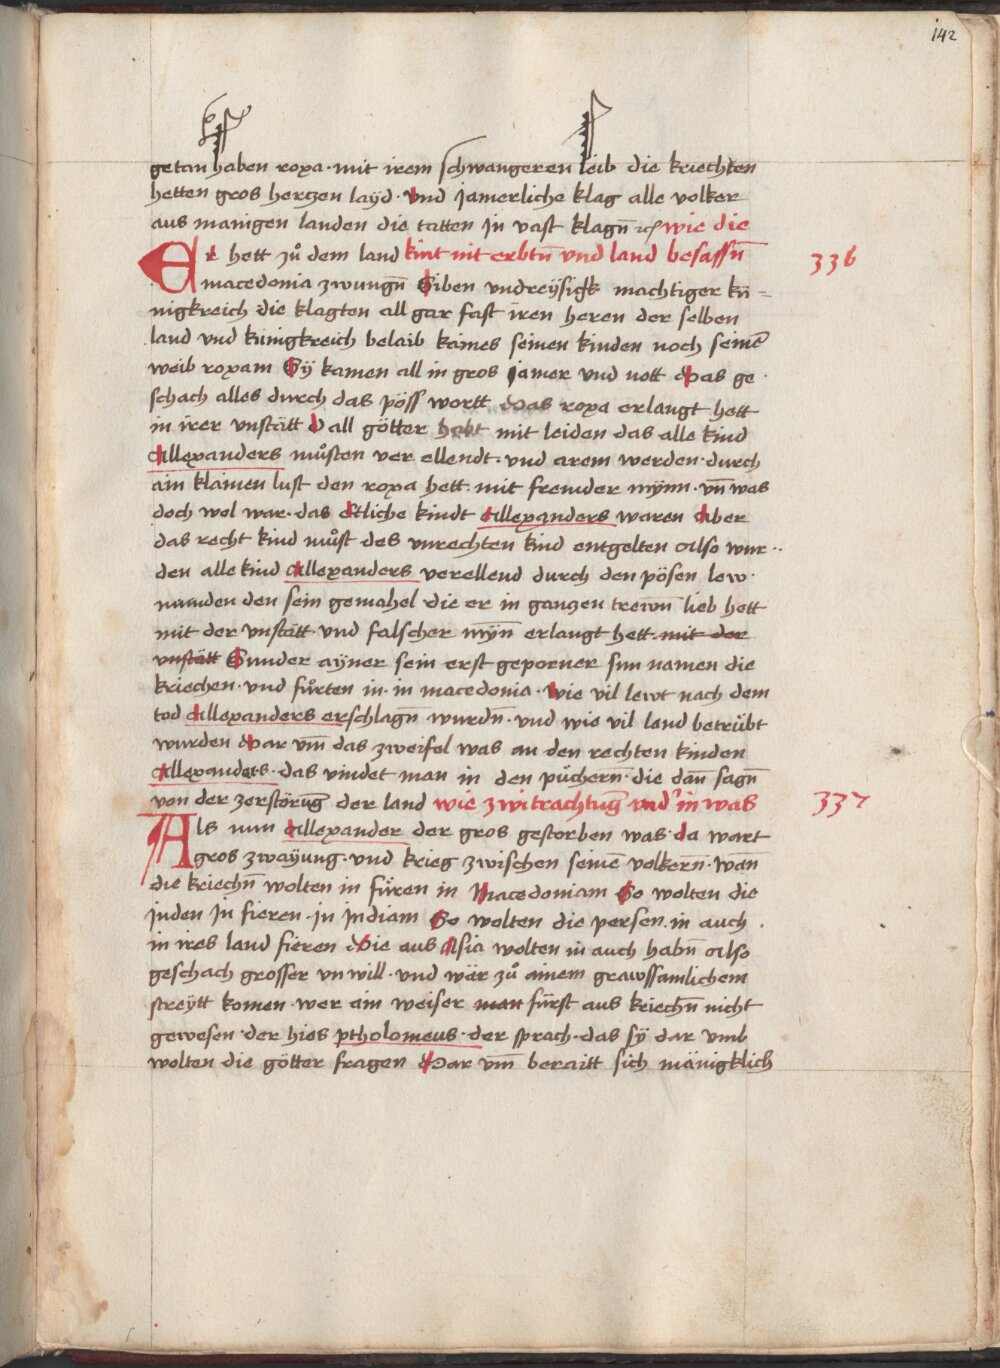 142
getan haben roxa · mit irem schwangeren leib die kriechten
hetten gros hertzen layd · vnd jamerliche klag alle volker
aus manigen landen die tatten in vast klagn̄ wie die
Er hett zů dem land kint nit erbtn̄ vnd land besassn̄ 336
macedonia zwungn̄ Siben vndreÿsigk machtiger kü=
nigkreich die klagten all gar fast iren heren der selben
land vnd künigkreich belaib kaines seinen kinden noch seinē
weib roxam Sÿ kamen all in gros jamer vnd nott Das ge
schach alles durch das pöss wortt Das roxa erlangt hett
in irer vnstätt O all götter habt mit leiden das alle kind
Allexanders můsten ver ellendt · vnd arem werden · durch
ain klainen lust den roxa hett · mit fremder mÿnn · vn̄ was
doch wol war · das etliche kindt Allexanders waren Aber
das recht kind můst des vnrechten kind entgelten Also wur
den alle kind Allexanders verellend durch den pösen lew
manden den sein gemahel · die er in ganzen trewn̄ lieb hett
mit der vnstätt · vnd falscher mÿn̄ erlangt hett mit der
vnstätt Sunder aÿner sein erst geporner sun namen die
kriechen · vnd fůrten in · in macedonia · Wie vil lewt nach dem
tod Allexanders erschlagn̄ wurdn̄ · vnd wie vil lend betrübt
wurden Dar vm̄ das zweifel was an den rechten kinden
Allexanders · das vindet man in den püchern · die dan̄ sagn̄
von der zerstörūg der land wie zwitrachtūg vnd in was 337
Als nun Allexander der gros gestorben was · da wart
gros zwaÿung · vnd krieg zwischen seinē volkern̄ · wan̄
die kriechn̄ wolten in füren in Macedoniam So wolten die
inden in fieren · in indiam So wolten die persen · in auch
in ires land fieren Die aus Asia wolten in auch habn̄ Also
geschach grosser vnwill · vnd wär zů ainem grawssamlichem
streÿtt komen · wer ain weiser man fürst aus kriechn̄ nicht
gewesen · der hies ptholomeus · der sprach · das sÿ dar vmb
wolten die götter fragen Dar vm̄ beraitt sich mänigklich